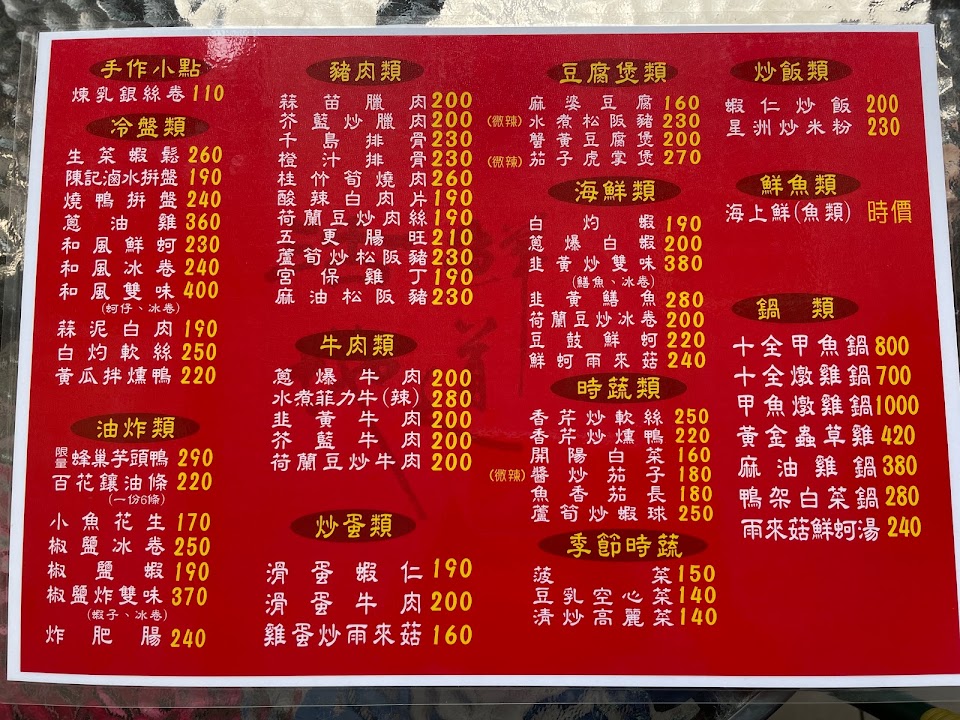 手作小點
煉乳銀絲卷 110
冷盤類
生菜蝦鬆 260
陳記滷水拼盤 190
燒鴨拼盤 240
蔥油雞 360
和風鮮蚵 230
和風冰卷 240
和風雙味 400
(蚵仔、冰卷)
蒜泥白肉 190
白灼軟絲 250
黃瓜拌燻鴨 220
油炸類
限量 蜂巢芋頭鴨 290
百花鑲油條 220
(一份6條)
小魚花生 170
椒鹽冰卷 250
椒鹽蝦 190
椒鹽炸雙味 370
(蝦子、冰卷)
炸肥腸 240
豬肉類
蒜苗臘肉 200
芥藍炒臘肉 200
千島排骨 230
橙汁排骨 230
桂竹筍燒肉 260
酸辣白肉片 190
荷蘭豆炒肉絲 190
五更腸旺 210
蘆筍炒松阪豬 230
宮保雞丁 190
麻油松阪豬 230
牛肉類
蔥爆牛肉 200
水煮菲力牛(辣) 280
韭黃牛肉 200
芥藍牛肉 200
荷蘭豆炒牛肉 200
炒蛋類
滑蛋蝦仁 190
滑蛋牛肉 200
雞蛋炒雨來菇 160
豆腐煲類
麻婆豆腐 160
(微辣) 水煮松阪豬 230
蟹黃豆腐煲 200
(微辣) 茄子虎掌煲 270
海鮮類
白灼蝦 190
蔥爆白蝦 200
韭黃炒雙味 380
(鱔魚、冰卷)
韭黃鱔魚 280
荷蘭豆炒冰卷 200
豆鼓鮮蚵 220
鮮蚵雨來菇 240
時蔬類
香芹炒軟絲 250
香芹炒燻鴨 220
開陽白菜 160
(微辣) 醬炒茄子 180
魚香茄長 180
蘆筍炒蝦球 250
季節時蔬
菠菜 150
豆乳空心菜 140
清炒高麗菜 140
炒飯類
蝦仁炒飯 200
星洲炒米粉 230
鮮魚類
海上鮮(魚類) 時價
鍋類
十全甲魚鍋 800
十全燉雞鍋 700
甲魚燉雞鍋 1000
黃金蟲草雞 420
麻油雞鍋 380
鴨架白菜鍋 280
雨來菇鮮蚵湯 240